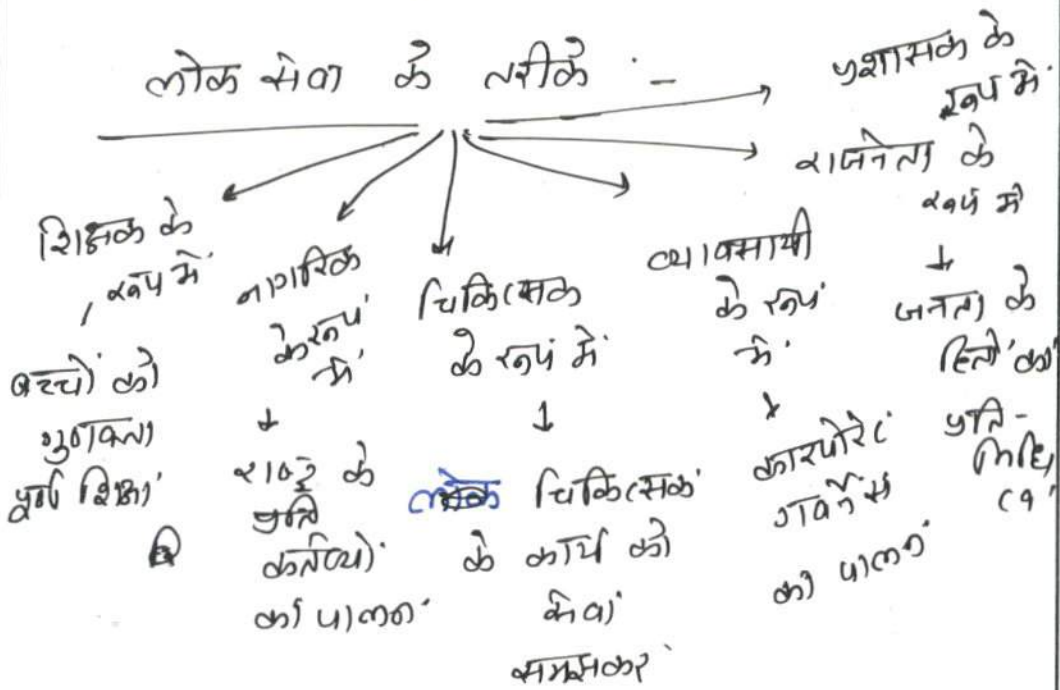 लोक सेवा के तरीके :-
प्रशासक के
रूप में
राजनेता के
रूप में
↓
जनता के
हितों का
प्रति-
निधि
त्व
शिक्षक के
रूप में
बच्चों को
गुणवत्ता
पूर्ण शिक्षा
नागरिक
के रूप
में
↓
राष्ट्र के
प्रति
कर्तव्यों
का पालन
चिकित्सक
के रूप में
↓
चिकित्सक
के कार्य को
सेवा
समझकर
व्यावसायी
के रूप
में
↓
कारपोरेट
गवर्नेंस
का पालन